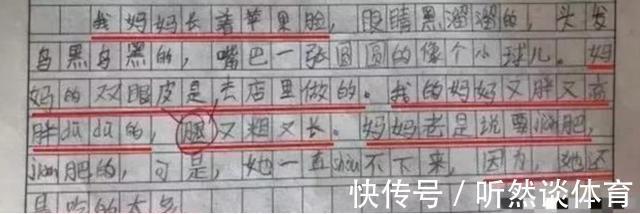 我妈妈长着苹果脸，眼睛黑溜溜的，头发
乌黑乌黑的，嘴巴一张圆圆的像个小球儿。妈
妈的双眼皮是去店里做的。我的妈妈又胖又高
胖dū dū的，腿又粗又长。妈妈老是说要jiǎn肥，
jiǎn肥的，可是，她一直shòu不下来，因为，她还
是吃的太多
快传号/听然谈体育